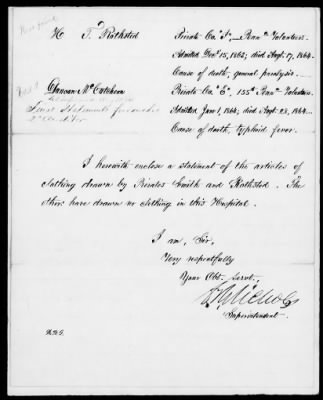 H. T. Rothsted Private Co. "A",
Penn. Volunteers.
Admitted Decr 15, 1862; died Augt 17, 1864.
Cause of death, general paralysis.
Duncan McCutcheon Private Co. "E", 155th Penn Volunteers.
Admitted June 1, 1864; Augt 28, 1864.
Final Statements forwarded
2d Auditor
Cause of death, typhoid fever.
I herewith enclose a statement of the articles of
clothing drawn by Privates Smith and Rothsted. The
others have drawn no clothing in this Hospital.
I am, Sir,
Very respectfully
Your Obt. servt.
Nichols
Superintendent.